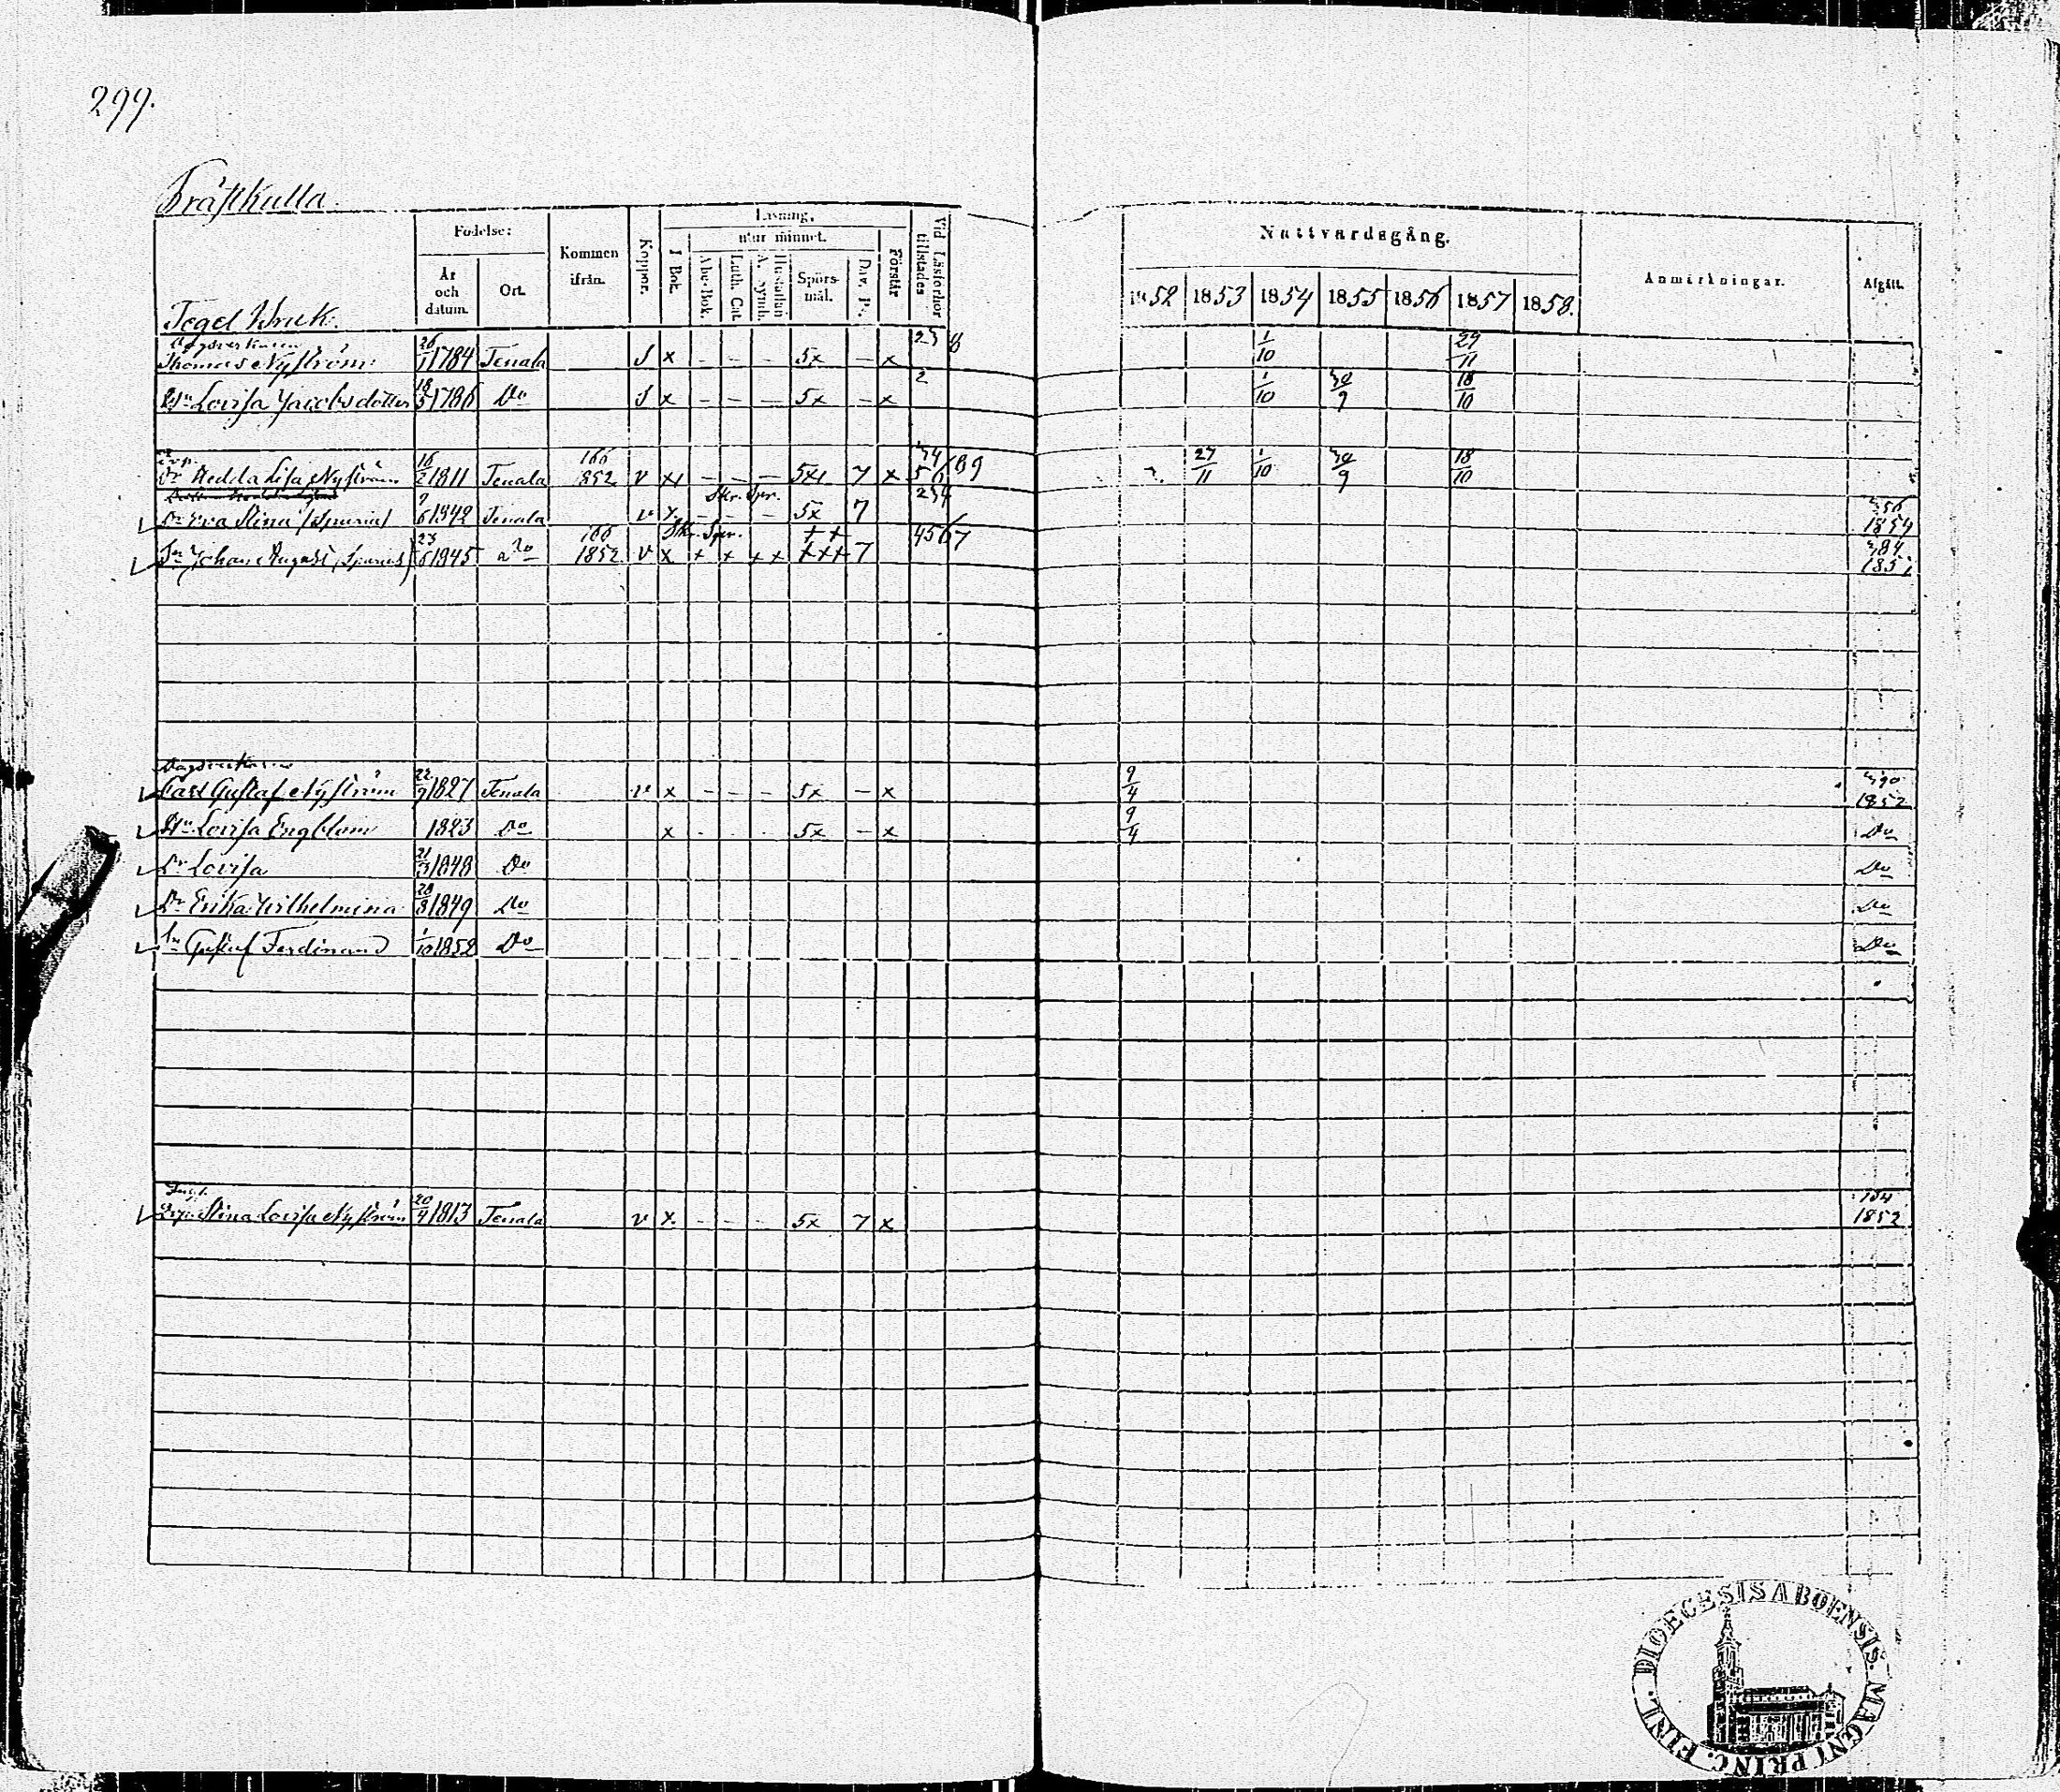 299.
Präst Kulla.
Tegel Bruk.
Födelse:
År och datum.
Ort.
Kommen ifrån.
Koppor.
Läsning,
I Bok.
utur minnet.
Abc-Bok.
Luth. Cat.
A. Symb.
Hustaflan
Spörs-mål.
Dav. Ps.
Förstår
Vid Läsförhör tillstädes
Nattvardsgång.
1852 1853 1854 1855 1856 1857 1858.
Anmärkningar.
Afgått.
Thomas Nyström 26/1 1784 Tenala S x - - - 5x - x 1/10 29/11
Lovisa Jacobsdotter 18/5 1786 Do S x - - - 5x - x 2 1/10 30/9 18/10
Dr Hedda Lisa Nyström 16/2 1811 Tenala 166 1852 v x - - - 5x 7 x 27/11 1/10 30/9 18/10
Dr Eva Stina (Spuria) 9/6 1842 Tenala v x Skr. Spr. 5x 7 234 1854
Sn Johan August (Spurius) 23/6 1845 Do 166 1852 v x Skr. Spr. + + + + +++ 7 4567
Dagsverkaren
Carl Gustaf Nyström 22/9 1827 Tenala v x - - - 5x - x 9/4 1852
Hu Lovisa Engblom 1823 Do x - - - 5x - x 9/4 Do
Dr Lovisa 21/3 1848 Do Do
Dr Erika Wilhelmina 28/8 1849 Do Do
Sn Gustaf Ferdinand 1/10 1852 Do Do
Stina Lovisa Nyström 20/4 1813 Tenala v x - - - 5x 7 x 1852
DIOECESIS ABOENSIS. MAGNI PRINC. FINL.